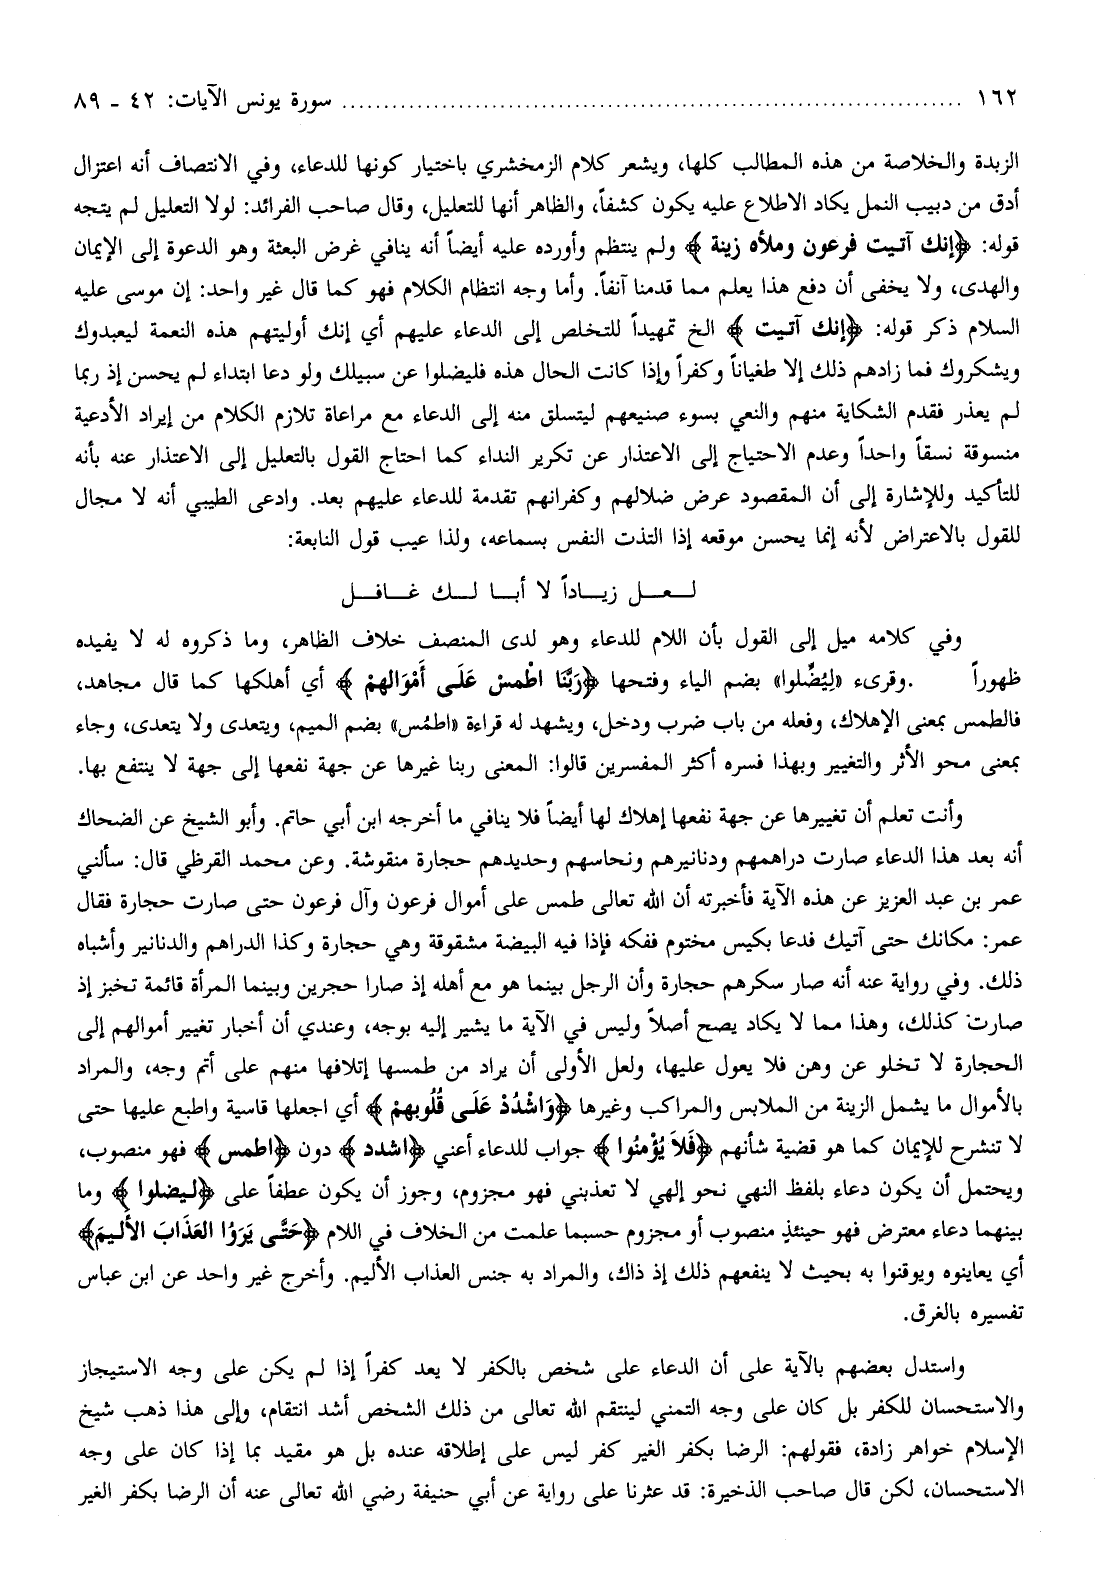 ١٦٢ ........................................................................... سورة يونس الآيات: ٤٢ - ٨٩
الزبدة والخلاصة من هذه المطالب كلها، ويشعر كلام الزمخشري باختيار كونها للدعاء، وفي الانتصاف أنه اعتزال
أدق من دبيب النمل يكاد الاطلاع عليه يكون كشفاً، والظاهر أنها للتعليل، وقال صاحب الفرائد: لولا التعليل لم يتجه
قوله: ﴿إنك آتيت فرعون وملأه زينة﴾ ولم ينتظم وأورده عليه أيضاً أنه ينافي غرض البعثة وهو الدعوة إلى الإيمان
والهدى، ولا يخفى أن دفع هذا يعلم مما قدمنا آنفاً. وأما وجه انتظام الكلام فهو كما قال غير واحد: إن موسى عليه
السلام ذكر قوله: ﴿إنك آتيت﴾ الخ تمهيداً للتخلص إلى الدعاء عليهم أي إنك أوليتهم هذه النعمة ليعبدوك
ويشكروك فما زادهم ذلك إلا طغياناً وكفراً وإذا كانت الحال هذه فليضلوا عن سبيلك ولو دعا ابتداء لم يحسن إذ ربما
لم يعذر فقدم الشكاية منهم والنعي بسوء صنيعهم ليتسلق منه إلى الدعاء مع مراعاة تلازم الكلام من إيراد الأدعية
منسوقة نسقاً واحداً وعدم الاحتياج إلى الاعتذار عن تكرير النداء كما احتاج القول بالتعليل إلى الاعتذار عنه بأنه
للتأكيد وللإشارة إلى أن المقصود عرض ضلالهم وكفرانهم تقدمة للدعاء عليهم بعد. وادعى الطيبي أنه لا مجال
للقول بالاعتراض لأنه إنما يحسن موقعه إذا التذت النفس بسماعه، ولذا عيب قول النابعة:
لـعـل زيـاداً لا أبـا لـك غـافـل
وفي كلامه ميل إلى القول بأن اللام للدعاء وهو لدى المنصف خلاف الظاهر، وما ذكروه له لا يفيده
ظهوراً .وقرىء «لِيُضِّلوا» بضم الياء وفتحها ﴿رَبَّنَا اطْمسْ عَلَى أَمْوَالهِمْ﴾ أي أهلكها كما قال مجاهد،
فالطمس بمعنى الإهلاك، وفعله من باب ضرب ودخل، ويشهد له قراءة «اطمُس» بضم الميم، ويتعدى ولا يتعدى، وجاء
بمعنى محو الأثر والتغيير وبهذا فسره أكثر المفسرين قالوا: المعنى ربنا غيرها عن جهة نفعها إلى جهة لا ينتفع بها.
وأنت تعلم أن تغييرها عن جهة نفعها إهلاك لها أيضاً فلا ينافي ما أخرجه ابن أبي حاتم. وأبو الشيخ عن الضحاك
أنه بعد هذا الدعاء صارت دراهمهم ودنانيرهم ونحاسهم وحديدهم حجارة منقوشة. وعن محمد القرظي قال: سألني
عمر بن عبد العزيز عن هذه الآية فأخبرته أن الله تعالى طمس على أموال فرعون وآل فرعون حتى صارت حجارة فقال
عمر: مكانك حتى آتيك فدعا بكيس مختوم ففكه فإذا فيه البيضة مشقوقة وهي حجارة وكذا الدراهم والدنانير وأشباه
ذلك. وفي رواية عنه أنه صار سكرهم حجارة وأن الرجل بينما هو مع أهله إذ صارا حجرين وبينما المرأة قائمة تخبز إذ
صارت كذلك، وهذا مما لا يكاد يصح أصلاً وليس في الآية ما يشير إليه بوجه، وعندي أن أخبار تغيير أموالهم إلى
الحجارة لا تخلو عن وهن فلا يعول عليها، ولعل الأولى أن يراد من طمسها إتلافها منهم على أتم وجه، والمراد
بالأموال ما يشمل الزينة من الملابس والمراكب وغيرها ﴿وَاشْدُدْ عَلَى قُلُوبهِمْ﴾ أي اجعلها قاسية واطبع عليها حتى
لا تنشرح للإيمان كما هو قضية شأنهم ﴿فَلاَ يُؤْمنُوا﴾ جواب للدعاء أعني ﴿اشدد﴾ دون ﴿اطمس﴾ فهو منصوب،
ويحتمل أن يكون دعاء بلفظ النهي نحو إلهي لا تعذبني فهو مجزوم، وجوز أن يكون عطفاً على ﴿ليضلوا﴾ وما
بينهما دعاء معترض فهو حينئذٍ منصوب أو مجزوم حسبما علمت من الخلاف في اللام ﴿حَتَّى يَرَوُا العَذَابَ الأَليمَ﴾
أي يعاينوه ويوقنوا به بحيث لا ينفعهم ذلك إذ ذاك، والمراد به جنس العذاب الأليم. وأخرج غير واحد عن ابن عباس
تفسيره بالغرق.
واستدل بعضهم بالآية على أن الدعاء على شخص بالكفر لا يعد كفراً إذا لم يكن على وجه الاستيجاز
والاستحسان للكفر بل كان على وجه التمني لينتقم الله تعالى من ذلك الشخص أشد انتقام، وإلى هذا ذهب شيخ
الإسلام خواهر زادة، فقولهم: الرضا بكفر الغير كفر ليس على إطلاقه عنده بل هو مقيد بما إذا كان على وجه
الاستحسان، لكن قال صاحب الذخيرة: قد عثرنا على رواية عن أبي حنيفة رضي الله تعالى عنه أن الرضا بكفر الغير